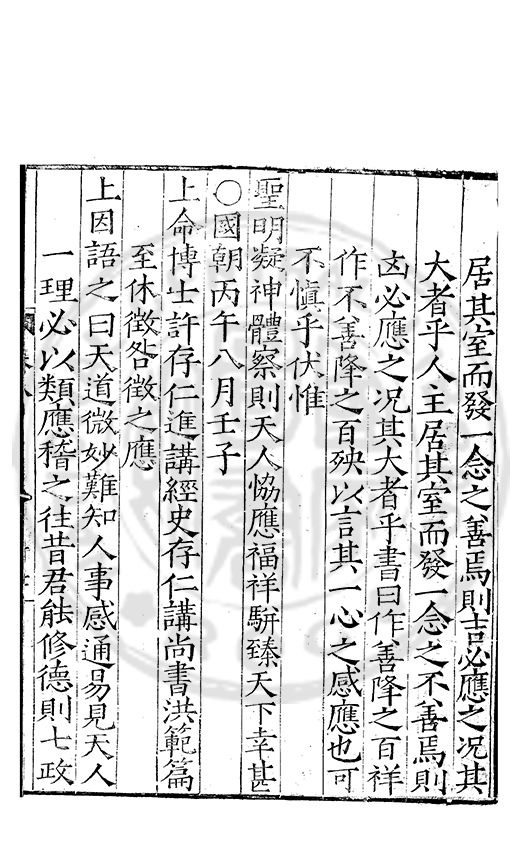 居其室而發一念之善焉則吉必應之况其
大者乎人主居其室而發一念之不善焉則
凶必應之况其大者乎書曰作善降之百祥
作不善降之百殃以言其一心之感應也可
不慎乎伏惟
聖明凝神體察則天人恊應福祥駢臻天下幸甚
○國朝丙午八月壬子
上命博士許存仁進講經史存仁講尚書洪範篇
至休徵咎徵之應
上因語之曰天道微妙難知人事感通易見天人
一理必以類應稽之往昔君能修德則七政